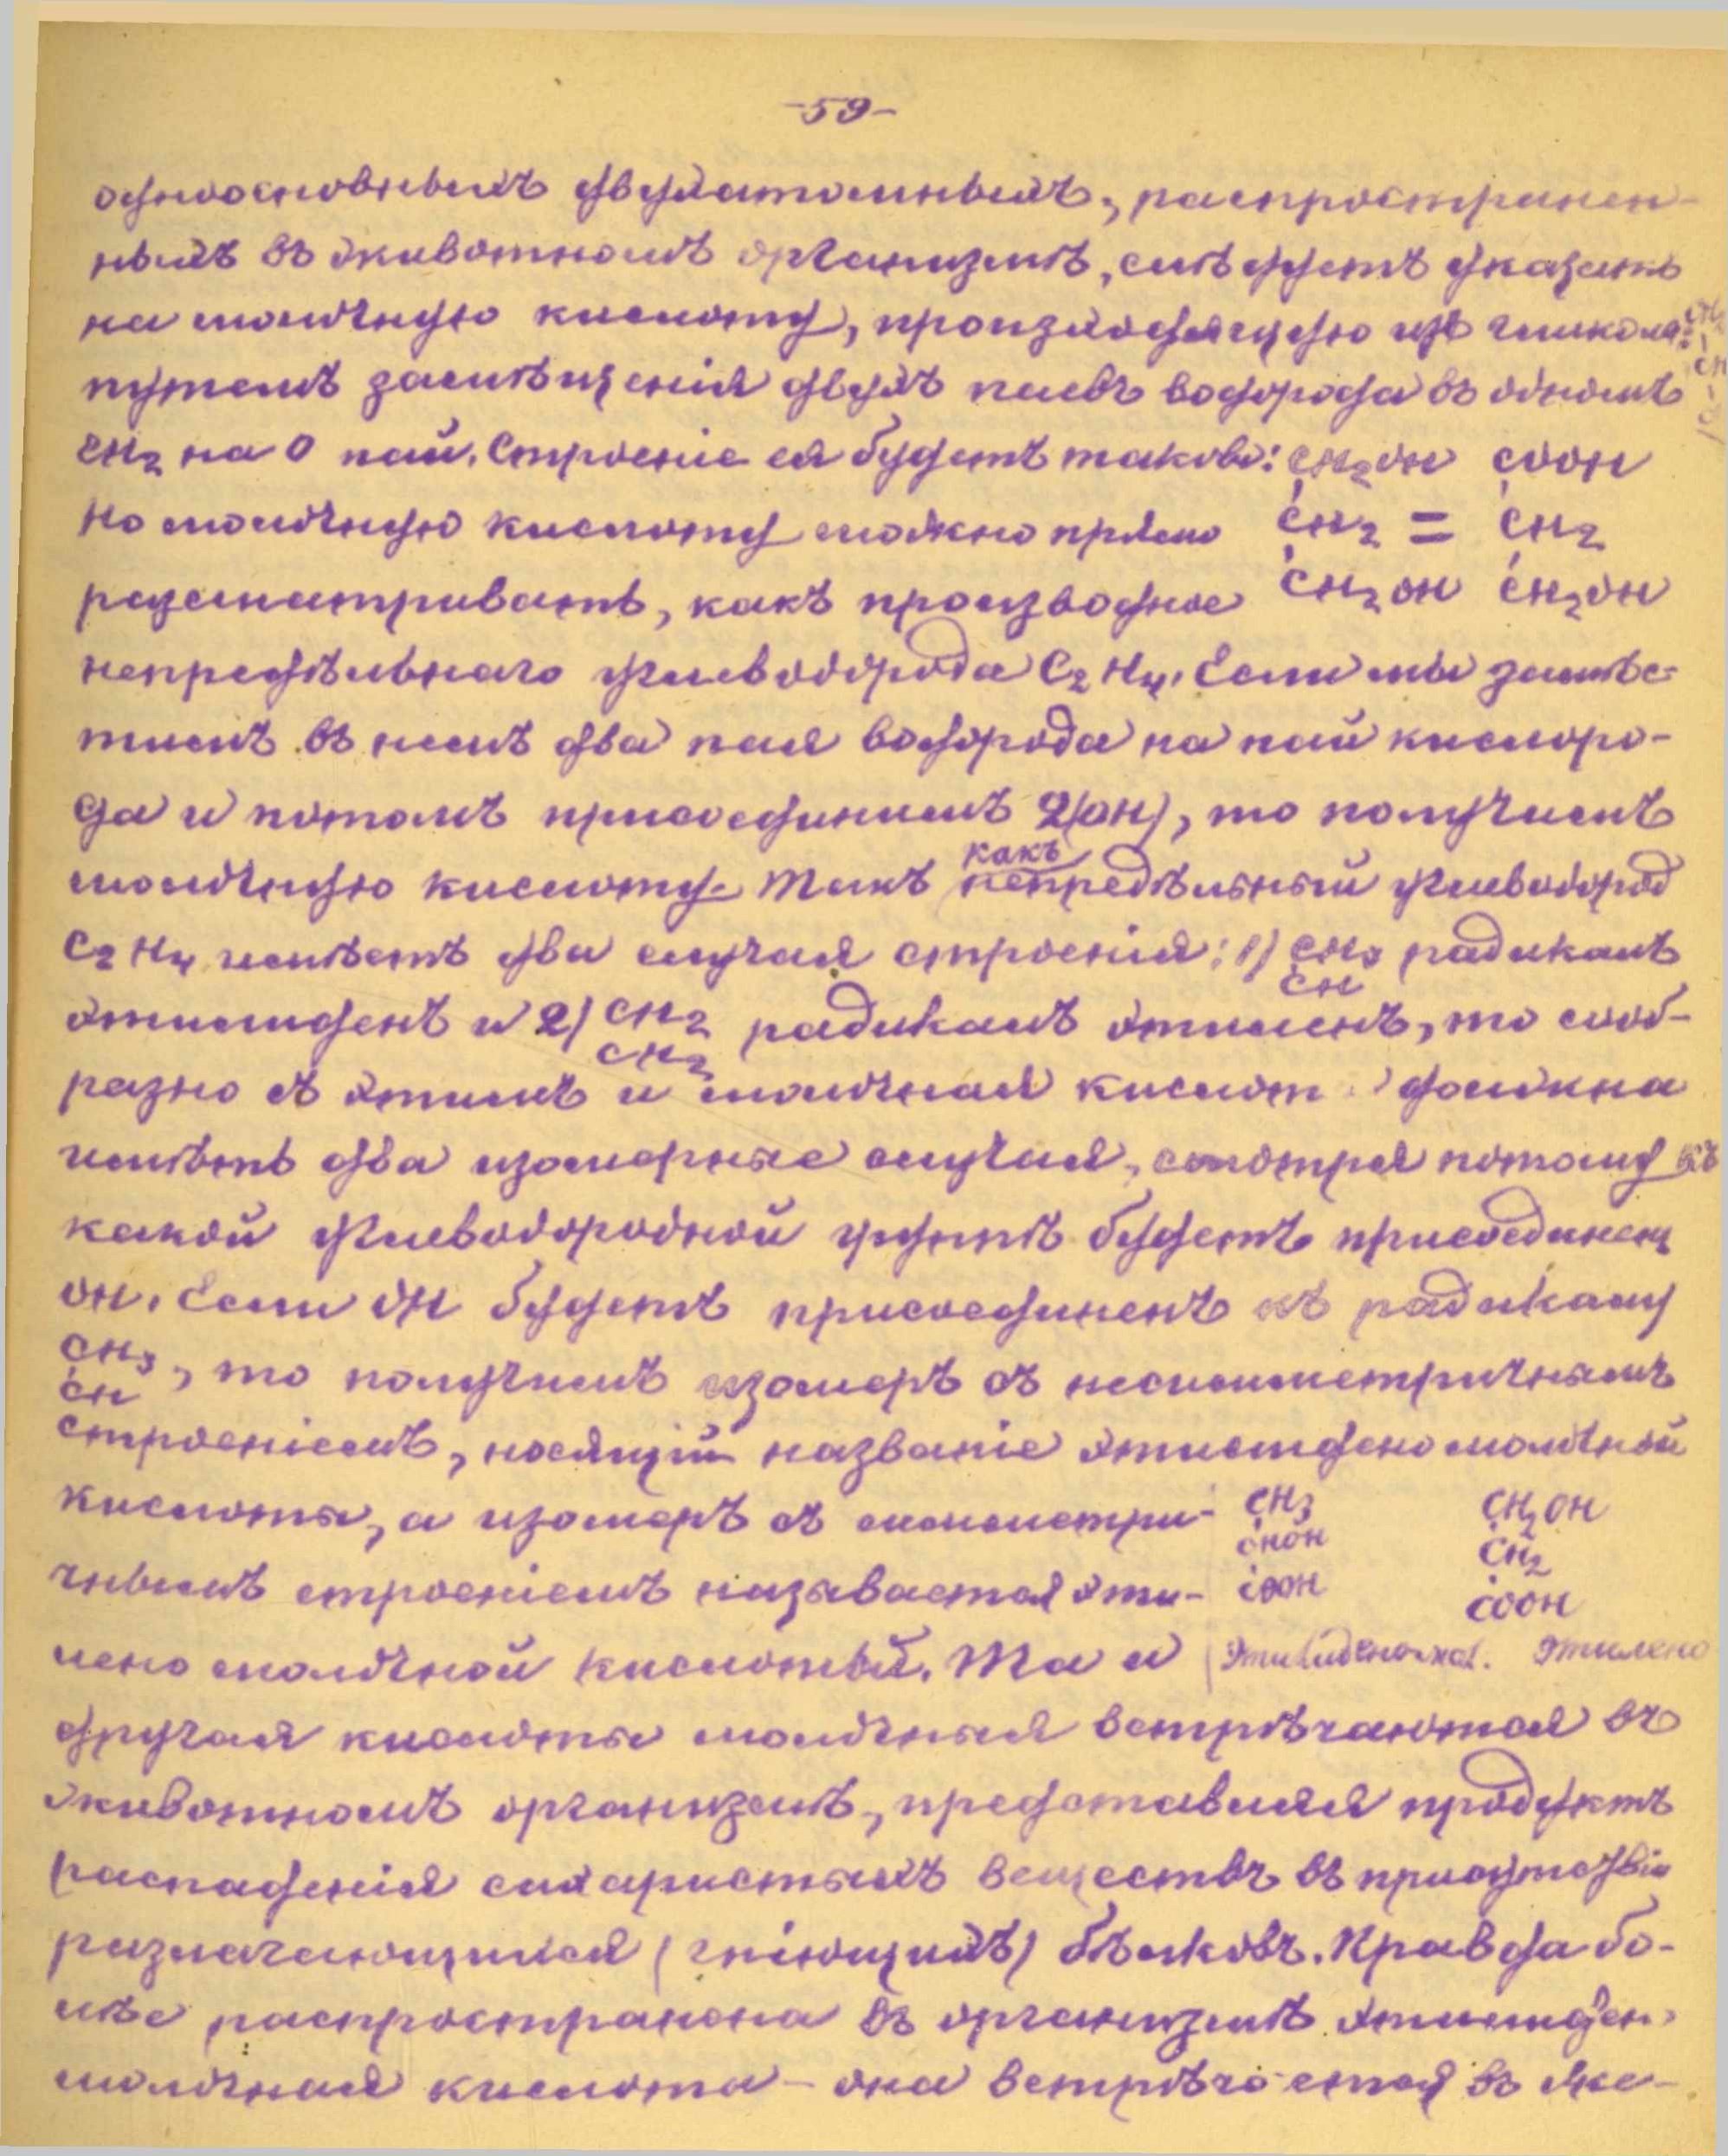 -59-
одноосновныхъ двухатомныхъ, распространен-
ныхъ въ животномъ организмѣ, слѣдуетъ указать
на молочную кислоту, произходящую изъ гликоля:
путемъ замѣщенія двухъ паевъ водорода въ одномъ
CH2 на O пай. Строеніе ея будетъ таково: CH2OH COOH
Но молочную кислоту можно прямо CH2 = CH2
разсматривать, какъ производное CH2OH CH2OH
непредѣльнаго углеводорода C2H4. Если мы замѣс-
тимъ въ немъ два пая водорода на пай кислоро-
да и потомъ присоединимъ 2(OH), то получимъ
какъ
молочную кислоту. Такъ непредѣльный углеводород
C2H4 имѣетъ два случая строенія: 1) CH3 радикалъ
CH
этилиденъ и 2) CH2 радикалъ этиленъ, то сооб-
CH2
разно съ этимъ и молочная кислот должна
имѣть два изомерные случая, смотря потому къ
какой углеводородной группѣ будетъ присоединен
OH. Если OH будетъ присоединенъ къ радикалу
CH3
CH , то получимъ изомеръ съ несимметричнымъ
строеніемъ, носящій названіе этилидено молочной
кислоты, а изомеръ съ симметри- CH3 CH2OH
CHOH CH2
чнымъ строеніемъ называется эти- COOH COOH
лено молочной кислотой. Та и Этилидено-мол. Этилено
другая кислоты молочныя встрѣчаются въ
животномъ организмѣ, представляя продуктъ
распаденія сахаристыхъ веществъ въ присутствіи
разлагающихся (гніющихъ) бѣлковъ. Правда бо-
лѣе распространена въ организмѣ этилиден.
молочная кислота - она встрѣчается въ же-